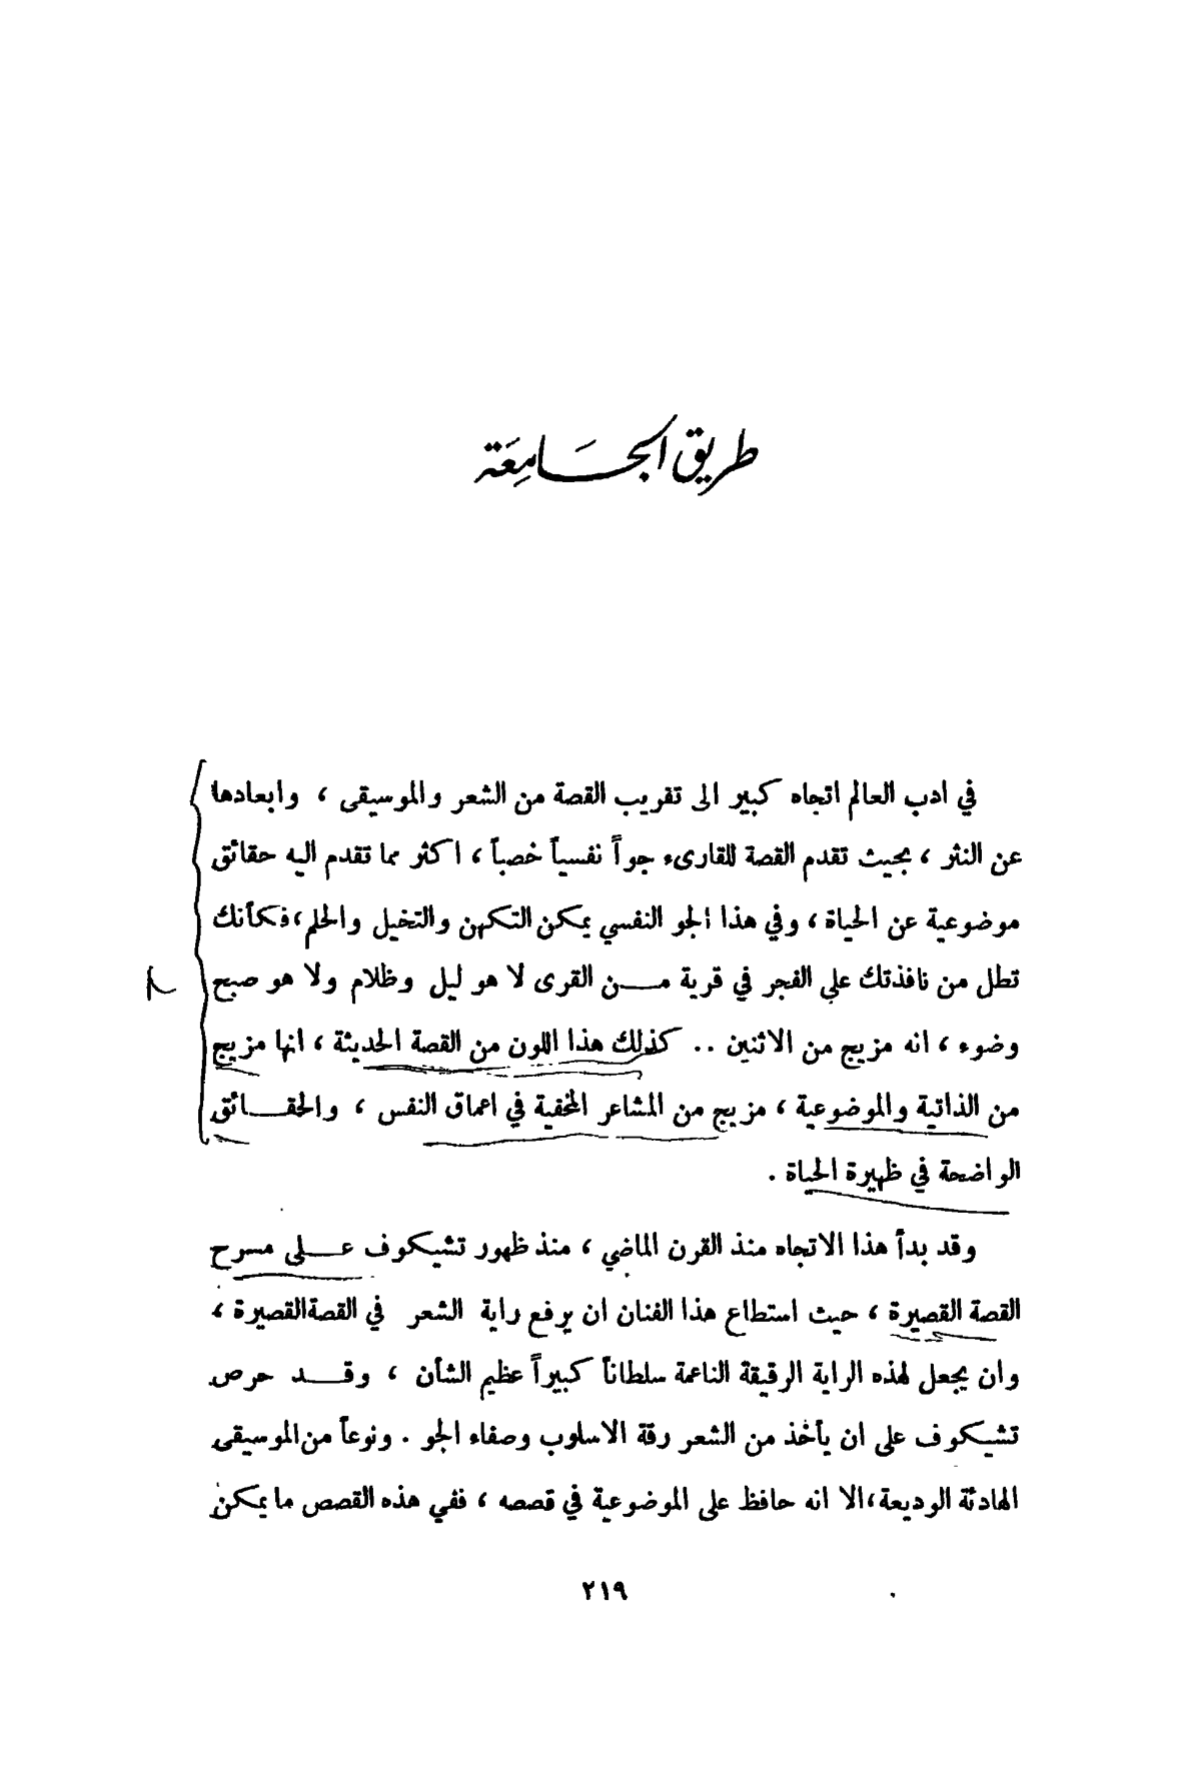 طريق الجامعة
في ادب العالم اتجاه كبير الى تقريب القصة من الشعر والموسيقى ، وابعادها
عن النثر ، بحيث تقدم القصة للقارىء جواً نفسياً خصباً ، اكثر مما تقدم اليه حقائق
موضوعية عن الحياة ، وفي هذا الجو النفسي يمكن التكهن والتخيل والحلم ، فكأنك
تطل من نافذتك على الفجر في قرية من القرى لا هو ليل وظلام ولا هو صبح
وضوء ، انه مزيج من الاثنين .. كذلك هذا اللون من القصة الحديثة ، انها مزيج
من الذاتية والموضوعية ، مزيج من المشاعر المخفية في اعماق النفس ، والحقائق
الواضحة في ظهيرة الحياة .
وقد بدأ هذا الاتجاه منذ القرن الماضي ، منذ ظهور تشيكوف على مسرح
القصة القصيرة ، حيث استطاع هذا الفنان ان يرفع راية الشعر في القصة القصيرة ،
وان يجعل لهذه الراية الرقيقة الناعمة سلطاناً كبيراً عظيم الشأن ، وقد حرص
تشيكوف على ان يأخذ من الشعر رقة الاسلوب وصفاء الجو . ونوعاً من الموسيقى
الهادئة الوديعة ، الا انه حافظ على الموضوعية في قصصه ، ففي هذه القصص ما يمكن
٢١٩